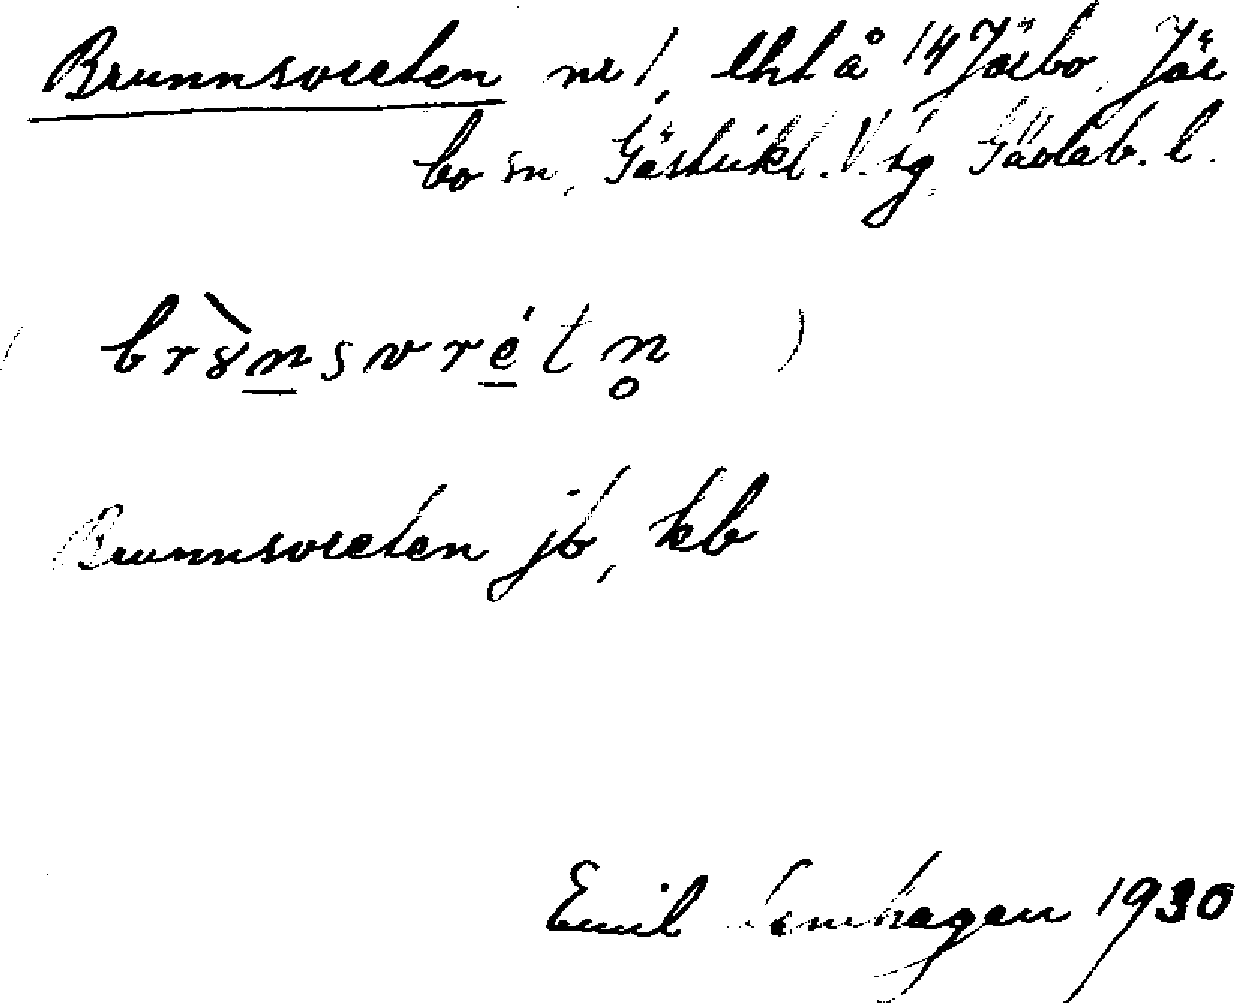 Brunnsvreten nr 1, lht å 14 Järbo, Jär
bo sn, Gästrikl. V. tg, Gävleb. l.
( brỳnsvrétn̥ )
Brunnsvreten jb, kb
Emil 1930